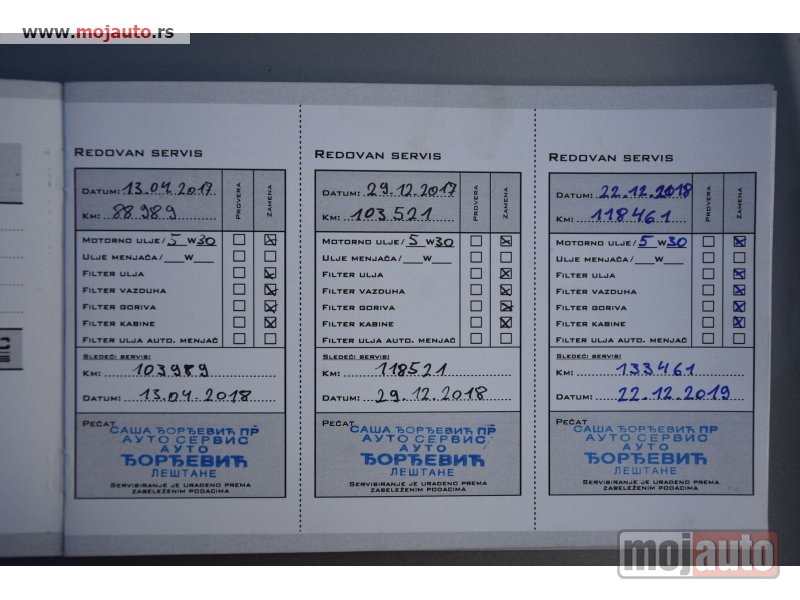 www.mojauto.rs
REDOVAN SERVIS
DATUM: 13.04.2017
KM: 88989
PROVERA
ZAMENA
MOTORNO ULJE/ 5 W30
ULJE MENJAČA/ W
FILTER ULJA
FILTER VAZDUHA
FILTER GORIVA
FILTER KABINE
FILTER ULJA AUTO. MENJAČ
SLEDEĆI SERVIS:
KM: 103989
DATUM: 13.04.2018
PEČAT
САША ЂОРЂЕВИЋ ПР
АУТО СЕРВИС
АУТО
ЂОРЂЕВИЋ
ЛЕШТАНЕ
SERVISIRANJE JE URAĐENO PREMA
ZABELEŽENIM PODACIMA
REDOVAN SERVIS
DATUM: 29.12.2017
KM: 103521
PROVERA
ZAMENA
MOTORNO ULJE/ 5 W30
ULJE MENJAČA/ W
FILTER ULJA
FILTER VAZDUHA
FILTER GORIVA
FILTER KABINE
FILTER ULJA AUTO. MENJAČ
SLEDEĆI SERVIS:
KM: 118521
DATUM: 29.12.2018
PEČAT
САША ЂОРЂЕВИЋ ПР
АУТО СЕРВИС
АУТО
ЂОРЂЕВИЋ
ЛЕШТАНЕ
SERVISIRANJE JE URAĐENO PREMA
ZABELEŽENIM PODACIMA
REDOVAN SERVIS
DATUM: 22.12.2018
KM: 118461
PROVERA
ZAMENA
MOTORNO ULJE/ 5 W30
ULJE MENJAČA/ W
FILTER ULJA
FILTER VAZDUHA
FILTER GORIVA
FILTER KABINE
FILTER ULJA AUTO. MENJAČ
SLEDEĆI SERVIS:
KM: 133461
DATUM: 22.12.2019
PEČAT
САША ЂОРЂЕВИЋ ПР
АУТО СЕРВИС
АУТО
ЂОРЂЕВИЋ
ЛЕШТАНЕ
SERVISIRANJE JE URAĐENO PREMA
ZABELEŽENIM PODACIMA
mojauto